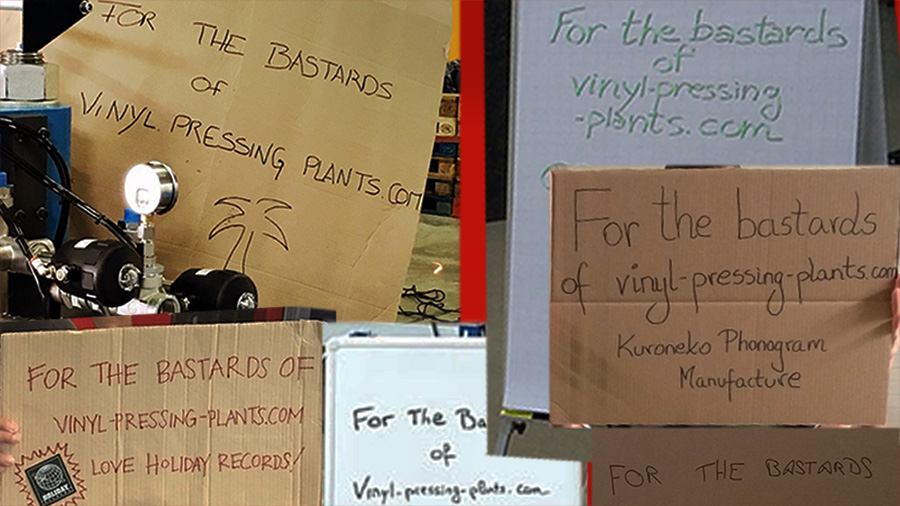 FOR THE BASTARDS
OF
VINYL PRESSING PLANTS.COM
For the bastards
of
vinyl-pressing
-plants.com
For the bastards
of vinyl-pressing-plants.com
Kuroneko Phonogram
Manufacture
FOR THE BASTARDS OF
VINYL-PRESSING-PLANTS.COM
LOVE HOLIDAY RECORDS!
HOLIDAY
For The Ba
of
Vinyl-pressing-plants.com
FOR THE BASTARDS